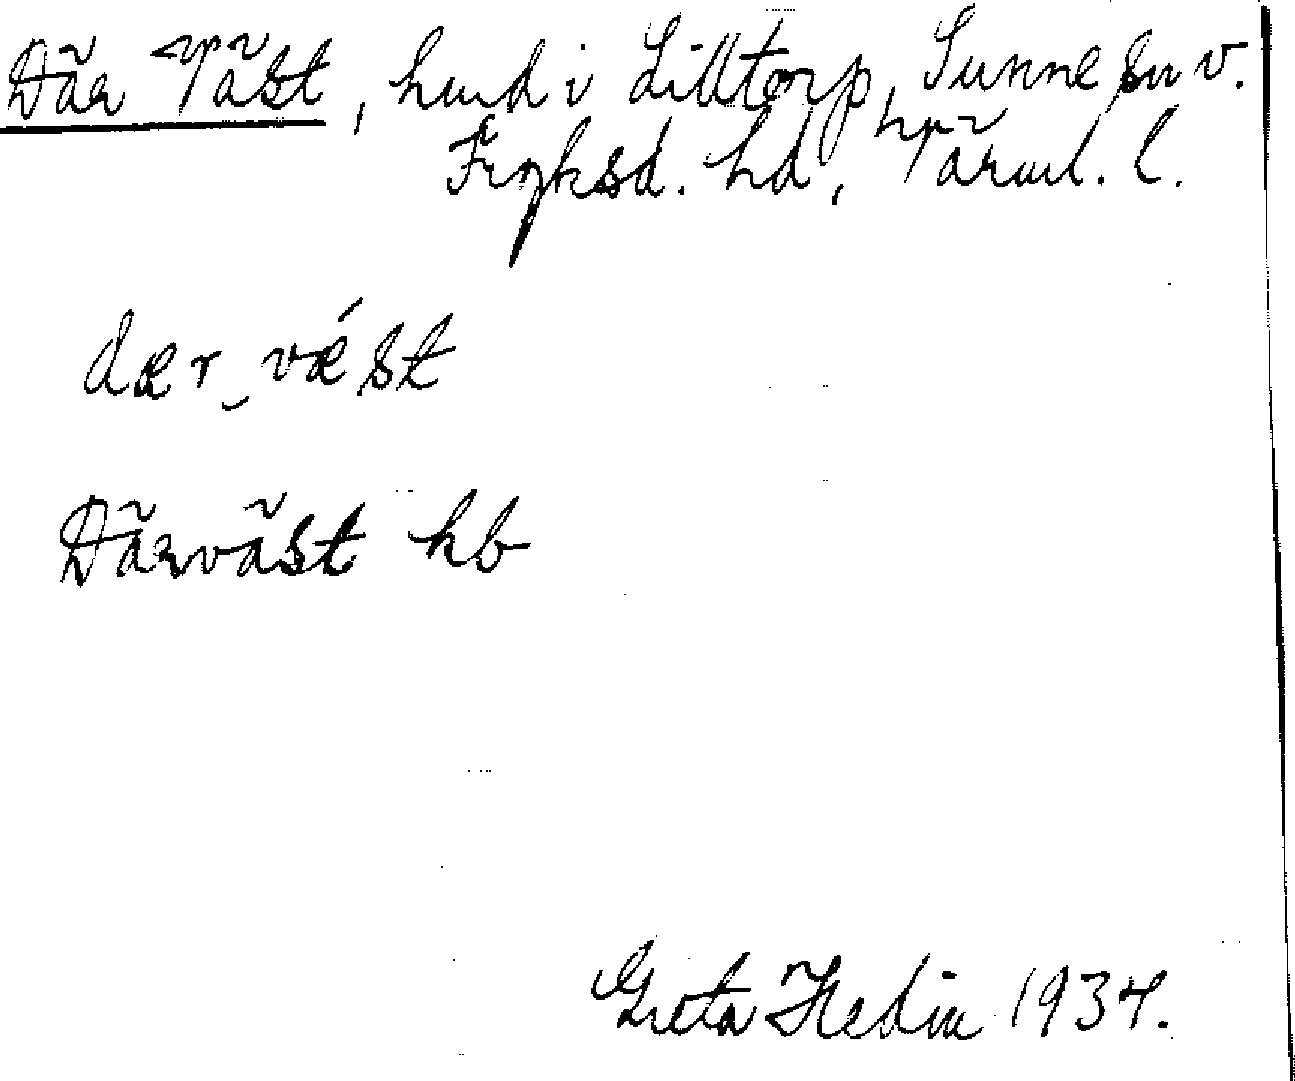 Där Väst, hmd i Lilltorp, Sunne sn v.
Fryksd. hd, Värml. l.
dær‿vǽst
Därväst kb
Greta Hedin 1934.